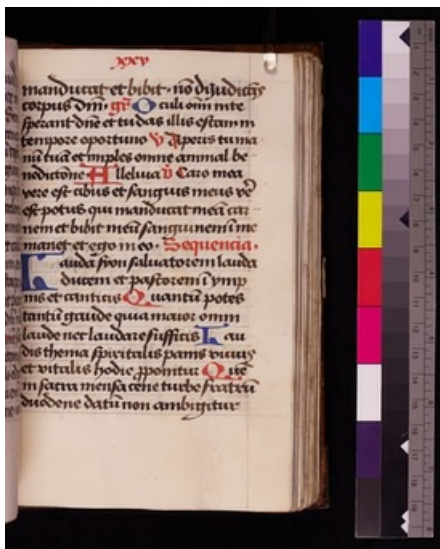 xxv
manducat et bibit · nō dijudicās
corpus dm̄i · gr̄ Oculi om̄ī in te
sperant dn̄e et tu das illis escam in
tempore oportuno v̄ Aperis tu ma
nū tuā et imples omne animal be
nedictōne Alleluia v̄ Caro mea
vere est cibus et sanguis meus vē
est potus qui manducat meā car
nem et bibit meū sanguinem ī me
manet et ego in eo · Sequencia ·
Lauda syon salvatorem lauda
ducem et pastorem ī ymp
nis et canticis Quantū potes
tantū gaude quia maior omni
laude nec laudare sufficis Lau
dis thema spiritalis panis vivus
et vitalis hodie ꝓponitur Quē
in sacra mensa cene turbe fratrū
duodene datū non ambigitur